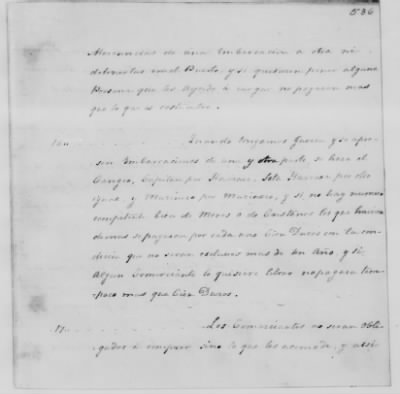 536
Mercancias de una Embarcacion a otra ni
detenerlas en el Puerto, y si quisieren poner alguna
Persona que les Ayude à cargar no pagaran mas
que lo que es costumbre.
16..  Quando tengamos Guerra y se apre-
sen Embarcaciones de una y otra parte, se hara el
Cange, Capitan por Capitan, Soto por
igual, y Marinero por Marinero, y si no hay numero
competente sea de Moros o de Cristianos los que
demas se pagaran por cada uno Cien Duros con la con-
dicion que no seran esclavos mas de un Año, y si
Algun Comerciante lo quisiere librar no pagara tam-
poco mas que Cien Duros.
17..  Los Comerciantes no seran obli-
gados à comprar sino lo que les acomode, y assi